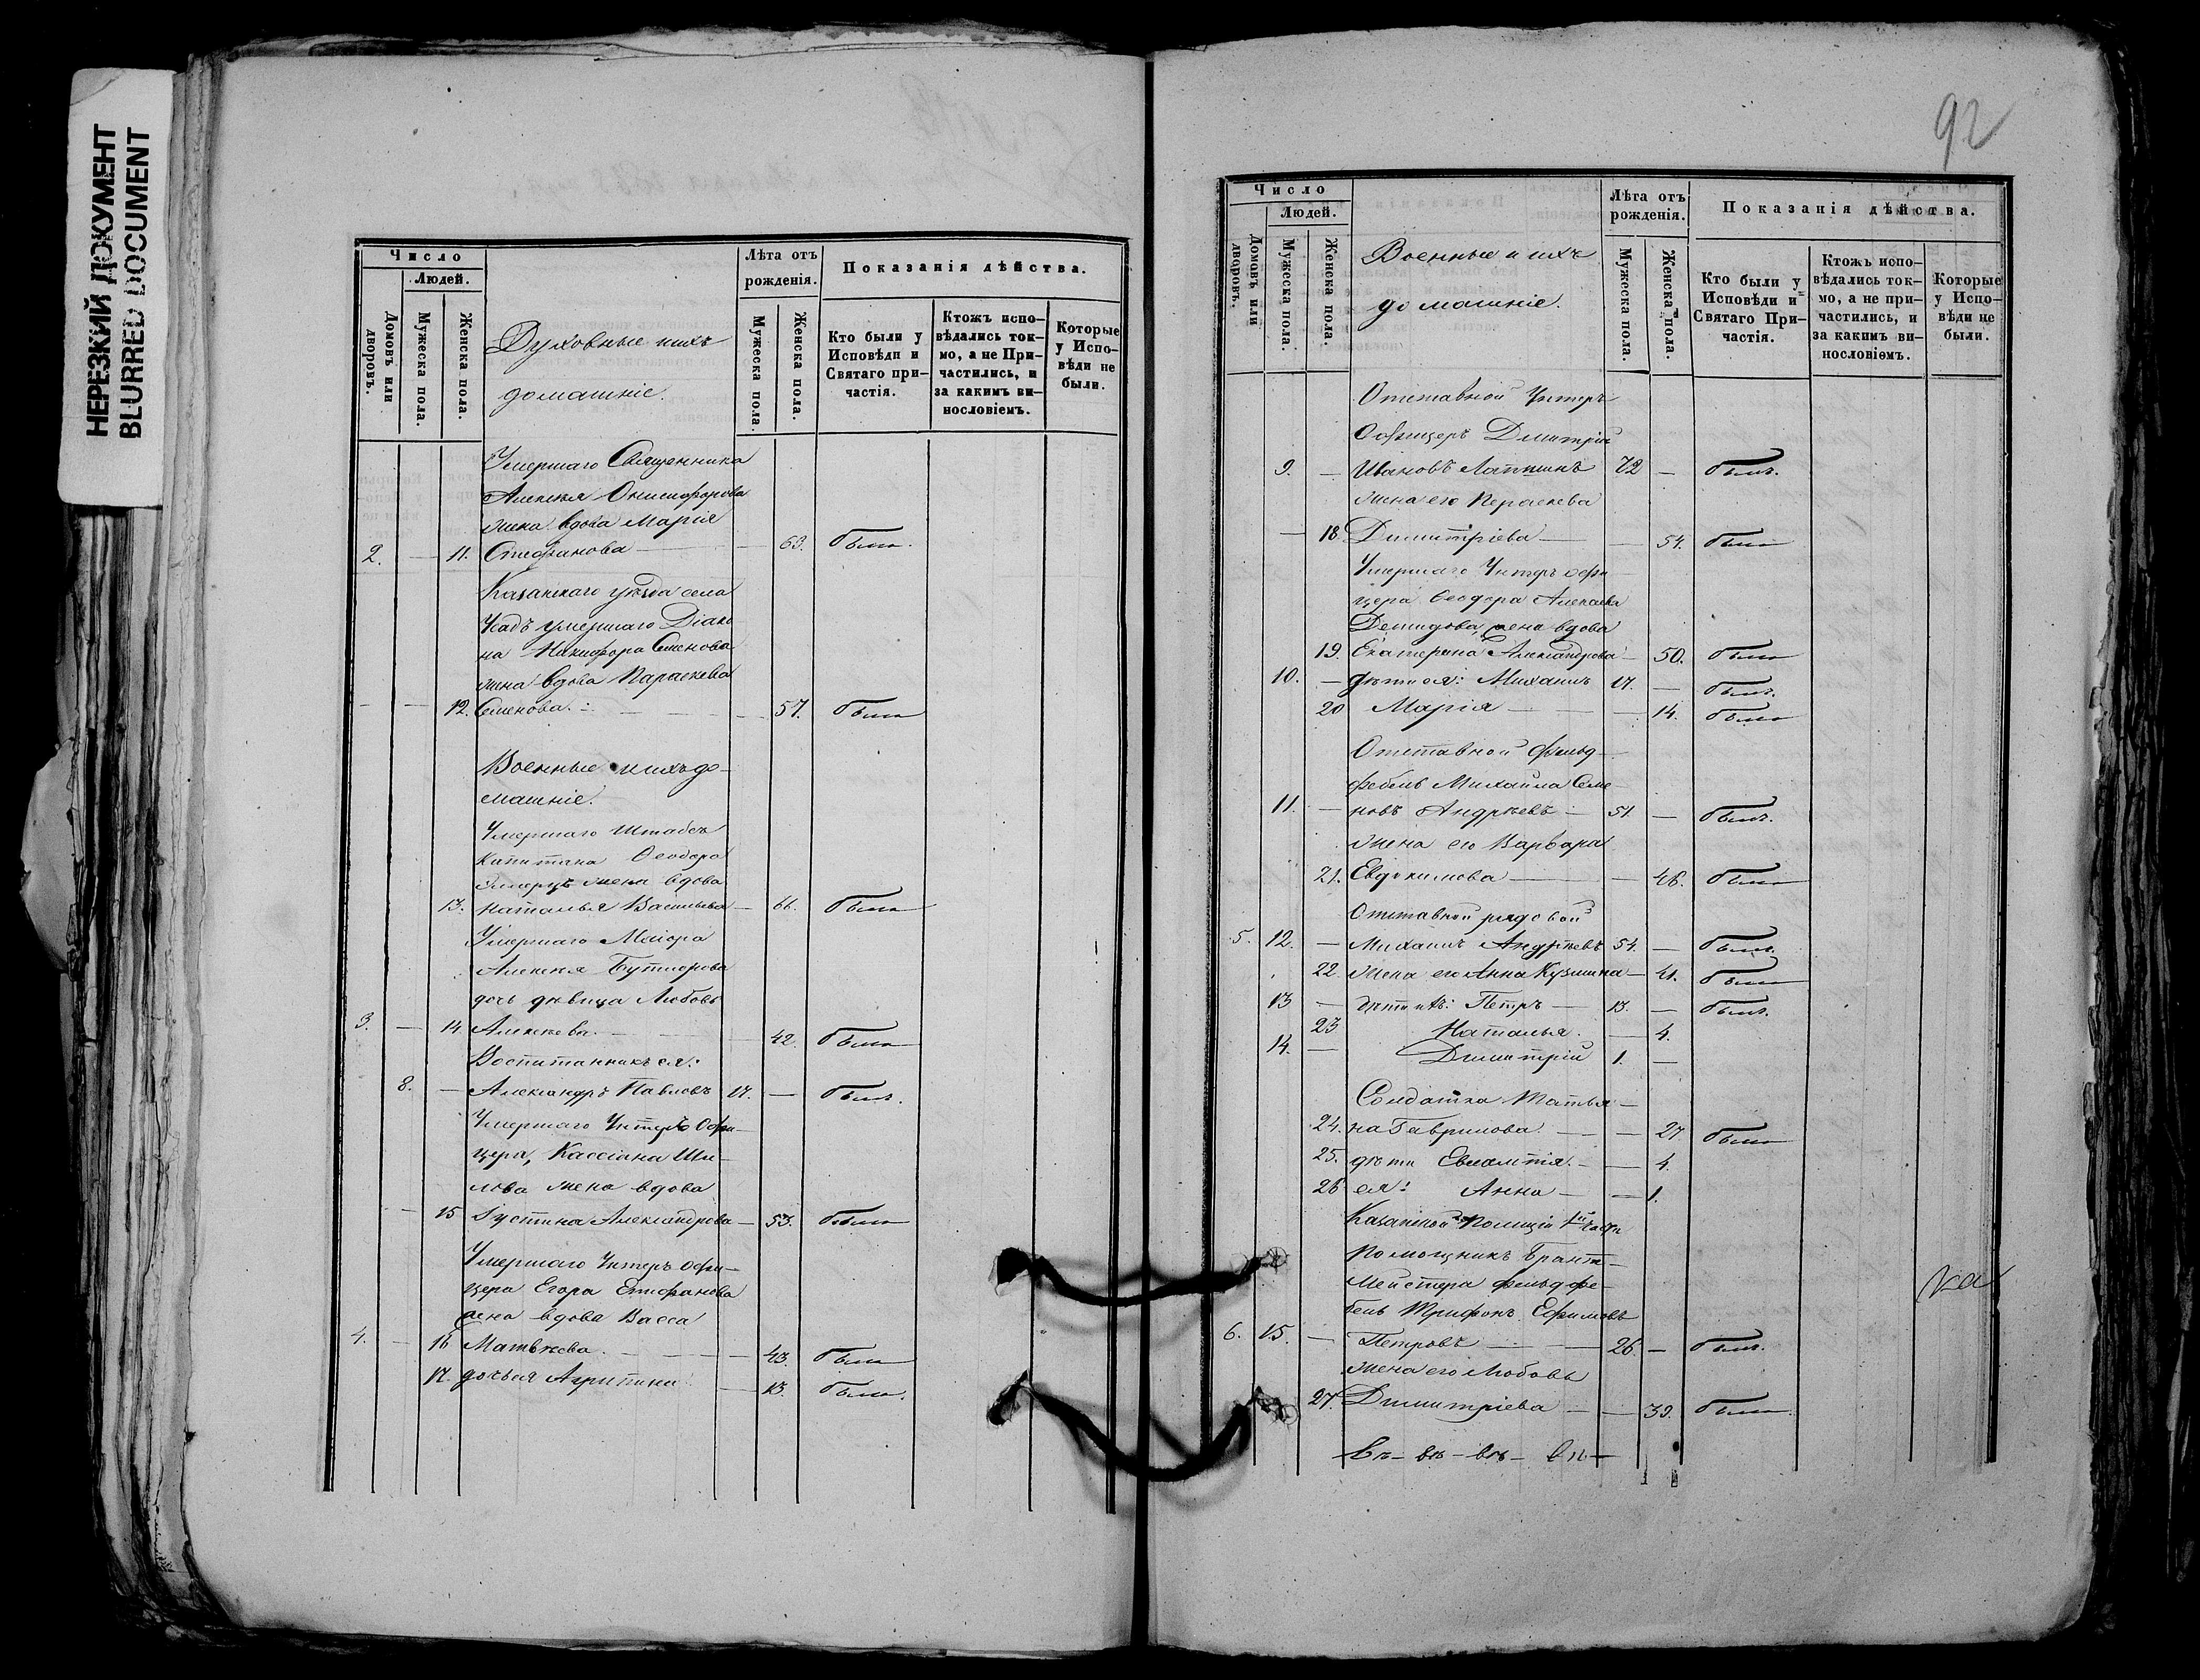 НЕРЕЗКИЙ ДОКУМЕНТ
BLURRED DOCUMENT
Число
Людей.
Домовъ или дворовъ.
Мужеска пола.
Женска пола.
Духовные и ихъ
домашніе.
Лѣта отъ рожденія.
Мужеска пола.
Женска пола.
Показанія дѣйства.
Кто были у Исповѣди и Святаго причастія.
Ктожъ исповѣдались токмо, а не Причастились, и за какимъ винословіемъ.
Которые у Исповѣди не были.
Умершаго Священника
Алексѣя Онисифорова
жена вдова Марія
2. — 11. Стефанова — — 63. была.
Казанскаго уѣзда села
Умершаго Діако
на Никифора Семенова
жена вдова Параскева
— — 12. Семенова. — — 57. была
Военные и ихъ до-
машніе.
Умершаго Штабсъ
Капитана Ѳеодора
жена вдова
13. Наталья Васильева — 66. была
Умершаго Маіора
Алексѣя Бутлерова
дочь дѣвица Любовь
3. — 14. Алексѣева. — — 42. была
Воспитанникъ ея:
8. — Александръ Павловъ 17. — былъ.
Умершаго Унтеръ Офи-
цера, Кассіана Ши-
лова жена вдова
— 15 Іустина Александрова — 53. была
Умершаго Унтеръ офи-
цера Егора Епифанова
жена вдова Васса
4. — 16 Матвѣева. — — 43. была
17. дочь ея Агрипина — 13. была.
92
Число
Людей.
Домовъ или дворовъ.
Мужеска пола.
Женска пола.
Военные и ихъ
домашніе.
Лѣта отъ рожденія.
Мужеска пола.
Женска пола.
Показанія дѣйства.
Кто были у Исповѣди и Святаго Причастія.
Ктожъ исповѣдались токмо, а не причастились, и за какимъ винословіемъ.
Которые у Исповѣди не были.
Отставной Унтеръ
Офицеръ Димитрій
9. — Ивановъ Лапшинъ 72 — былъ.
жена его Параскева
— 18. Димитріева — — 54. была
Умершаго Унтеръ офи
цера Ѳеодора Алексѣева
Демидова, жена вдова
19. Екатерина Александрова — 50. была
10. — дѣти ея: Михаилъ 17. — былъ.
20 Марія — — 14. была
Отставной фельд-
фебель Михаила Семе
11. — новъ Андрѣевъ — 51 — былъ.
жена его Варвара
21. Евдокимова — — 46. была
Отставной рядовой
5. 12. — Михаилъ Андрѣевъ 54. — былъ.
22. жена его Анна Кузмина — 41. была
13 — дѣти ихъ: Петръ — 13. — былъ.
23 Наталья. — 4.
14. — Димитрій 1. —
Солдатка Татья-
24. на Гаврилова. — — 27 была
25. дѣти Евлампія. — — 4.
26 ея: Анна — — 1.
Казанской Полиціи части
Помощникъ Брант-
Мейстера фельдфе-
бель Трифонъ Ефимовъ
6. 15. — Петровъ — — 26. — былъ.
жена его Любовь
27. Димитріева — — 39. была.